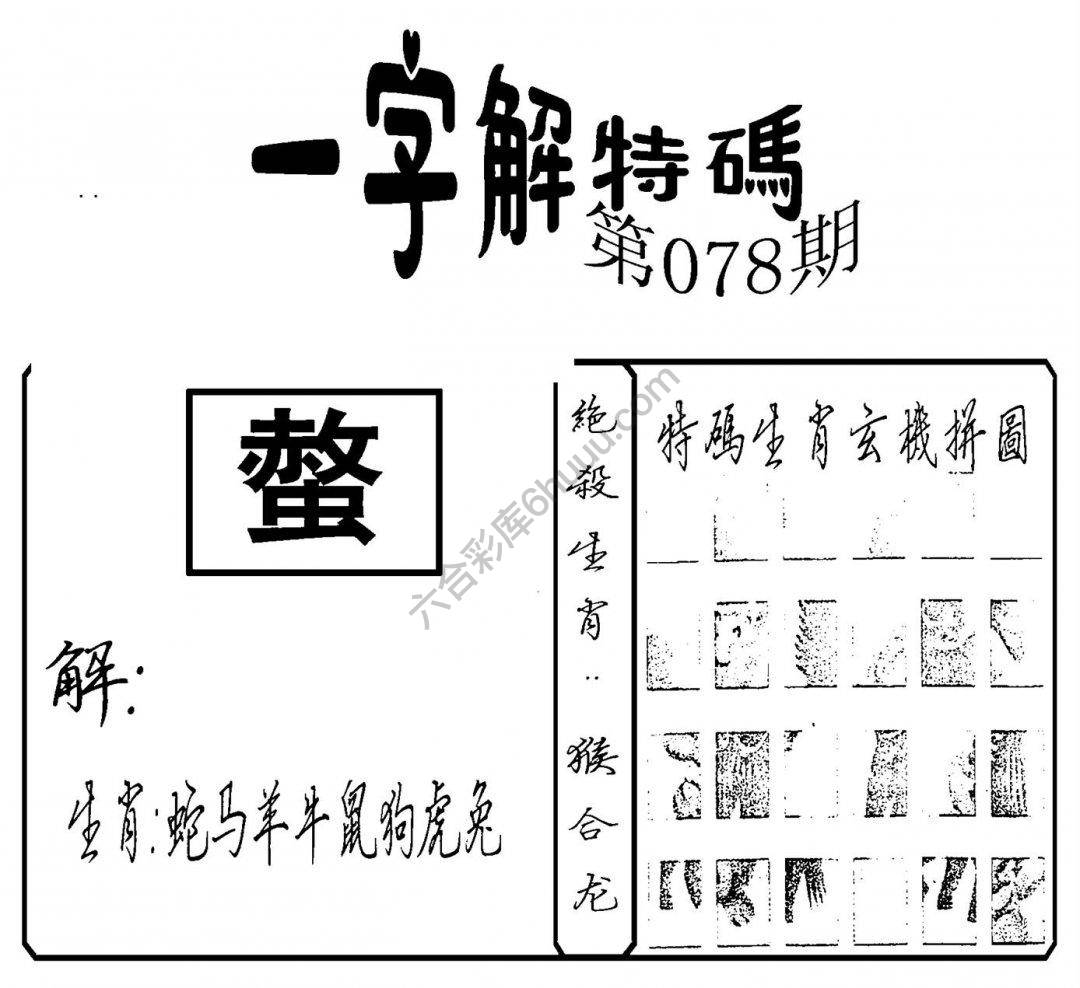 一字解特碼
第078期
螯
解:
生肖:蛇马羊牛鼠狗虎兔
絶殺生肖:猴合龙
特碼生肖玄機拼圖
六合彩库6huuu.com